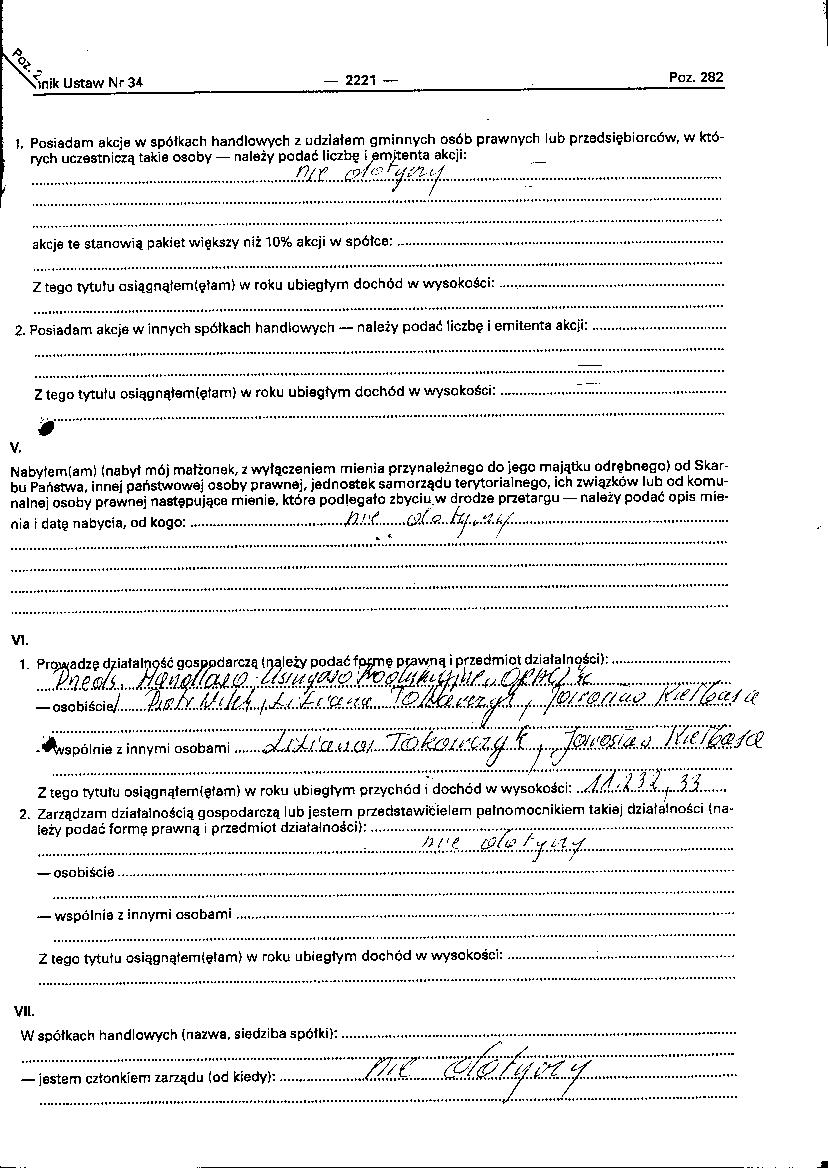 Poz. 2
nik Ustaw Nr 34 — 2221 — Poz. 282
1. Posiadam akcje w spółkach handlowych z udziałem gminnych osób prawnych lub przedsiębiorców, w któ-
rych uczestniczą takie osoby — należy podać liczbę i emitenta akcji:
nie dotyczy
akcje te stanowią pakiet większy niż 10% akcji w spółce:
Z tego tytułu osiągnąłem(ęłam) w roku ubiegłym dochód w wysokości:
2. Posiadam akcje w innych spółkach handlowych — należy podać liczbę i emitenta akcji:
Z tego tytułu osiągnąłem(ęłam) w roku ubiegłym dochód w wysokości:
V.
Nabyłem(am) (nabył mój małżonek, z wyłączeniem mienia przynależnego do jego majątku odrębnego) od Skar-
bu Państwa, innej państwowej osoby prawnej, jednostek samorządu terytorialnego, ich związków lub od komu-
nalnej osoby prawnej następujące mienie, które podlegało zbyciu w drodze przetargu — należy podać opis mie-
nia i datę nabycia, od kogo: nie dotyczy
VI.
1. Prowadzę działalność gospodarczą (należy podać formę prawną i przedmiot działalności):
Przeds. Handlowo Usługowo Produkcyjne
— osobiście Piotr Wilk, Liliana Tokarczyk, Jarosław Kiełbasa
- wspólnie z innymi osobami Liliana Tokarczyk, Jarosław Kiełbasa
Z tego tytułu osiągnąłem(ęłam) w roku ubiegłym przychód i dochód w wysokości: 11.232,33
2. Zarządzam działalnością gospodarczą lub jestem przedstawicielem pełnomocnikiem takiej działalności (na-
leży podać formę prawną i przedmiot działalności):
nie dotyczy
— osobiście
— wspólnie z innymi osobami
Z tego tytułu osiągnąłem(ęłam) w roku ubiegłym dochód w wysokości:
VII.
W spółkach handlowych (nazwa, siedziba spółki):
— jestem członkiem zarządu (od kiedy): nie dotyczy